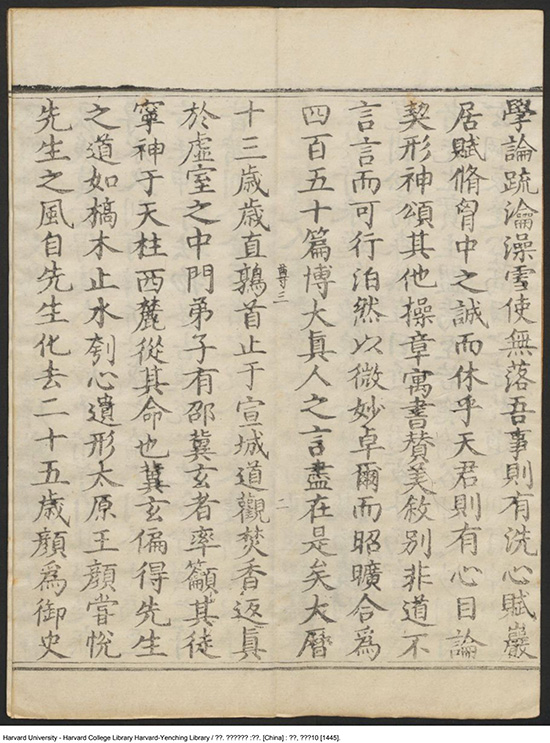 學論䟽瀹澡雪使無落吾事則有洗心賦巖
居賦脩胷中之誠而休乎天君則有心目論
契形神頌其他操章寓書賛美敘別非道不
言言而可行泊然以微妙卓爾而昭曠合爲
四百五十篇博大真人之言盡在是矣大曆
尊三
二
十三歲歲直鶉首止于宣城道觀焚香返真
於虛室之中門弟子有邵兾玄者率籲其徒
寧神于天柱西麓從其命也兾玄偏得先生
之道如槁木止水刳心遺形太原王顔嘗悅
先生之風自先生化去二十五歲顔爲御史
Harvard University - Harvard College Library Harvard-Yenching Library / ??. ?????? :??. [China] : ??, ???10 [1445].